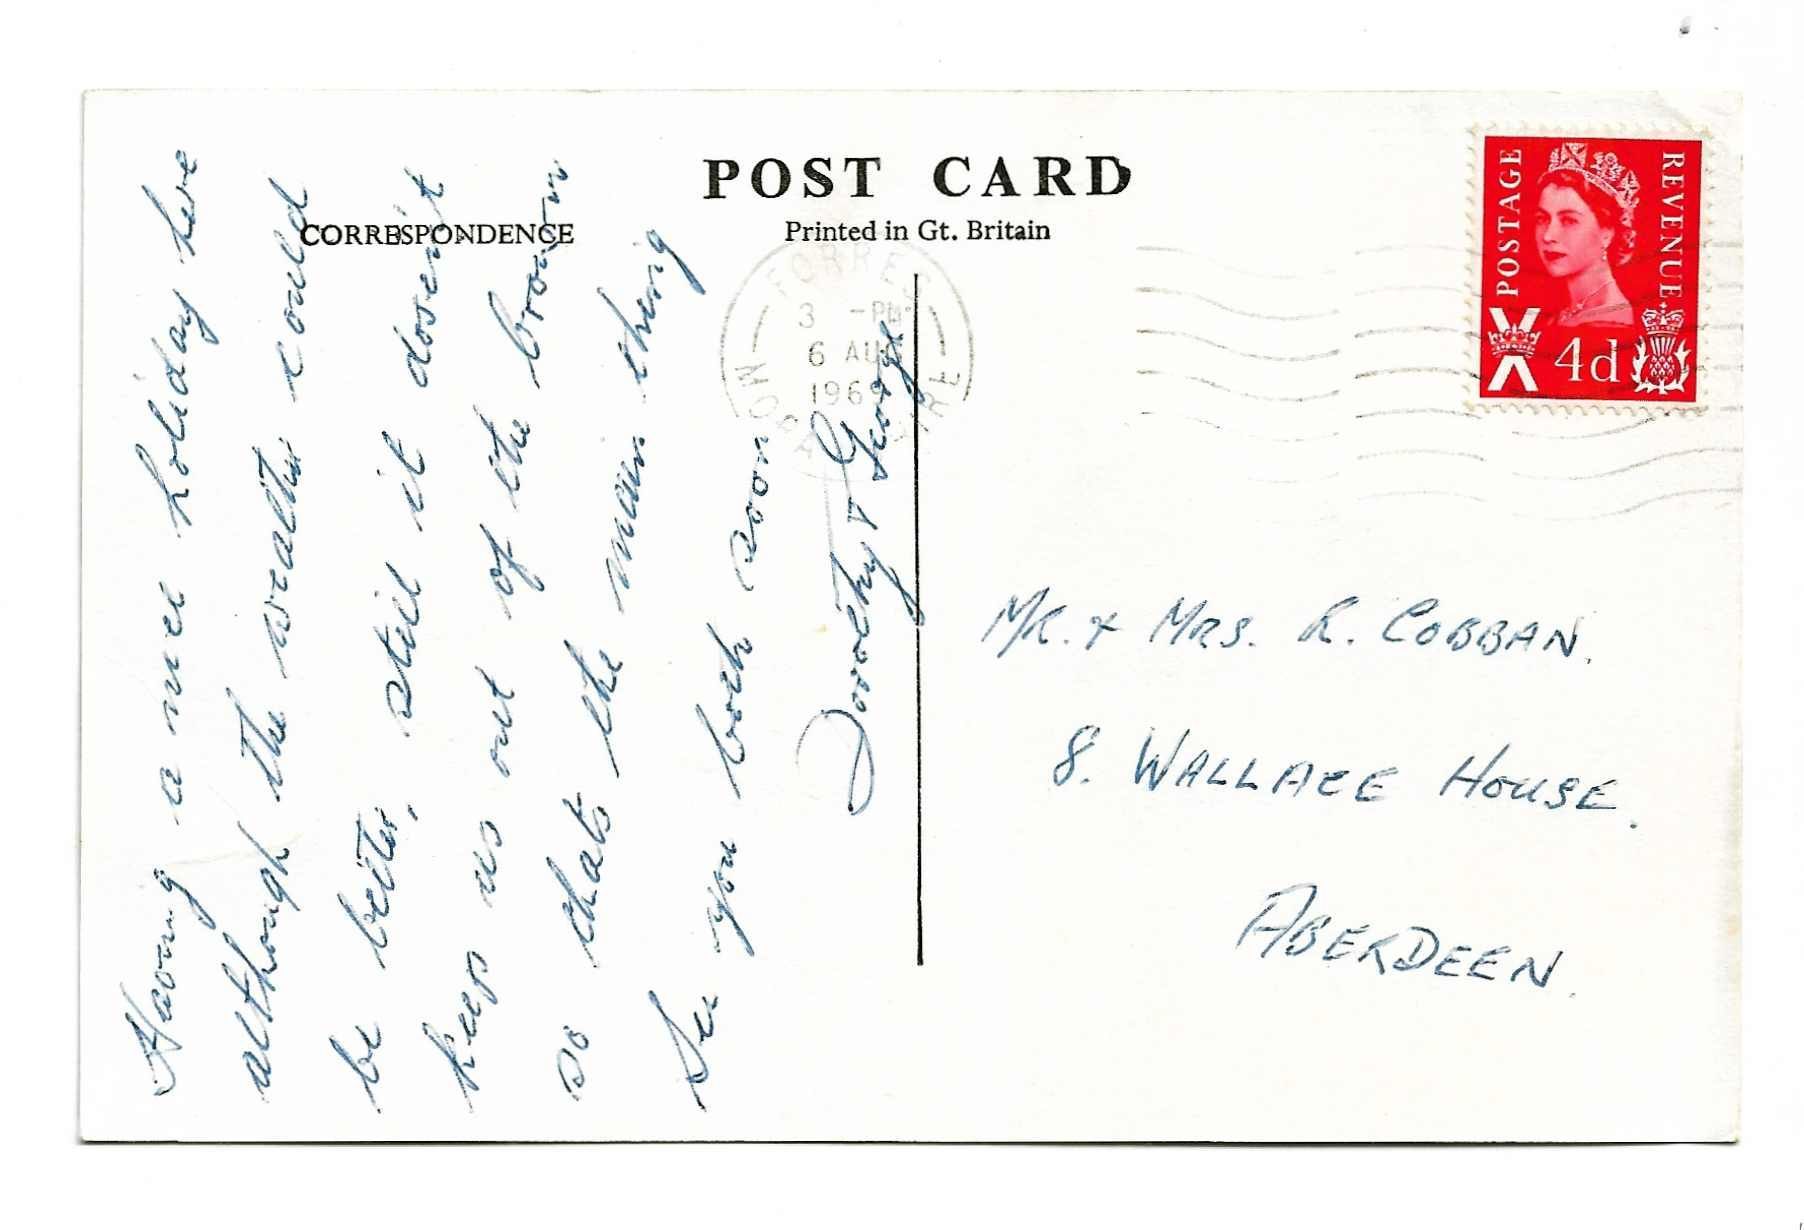 POST CARD
CORRESPONDENCE
Printed in Gt. Britain
POSTAGE
REVENUE
4d
FORRES
3 -PM
6 AUG
1969
MORAYSHIRE
Having a nice holiday here
although the weather could
be better, still it dosen't
keep us out of the brown
so thats the main thing
See you both soon
Dorothy & George
MR. & MRS. R. COBBAN.
8. WALLACE HOUSE.
ABERDEEN.